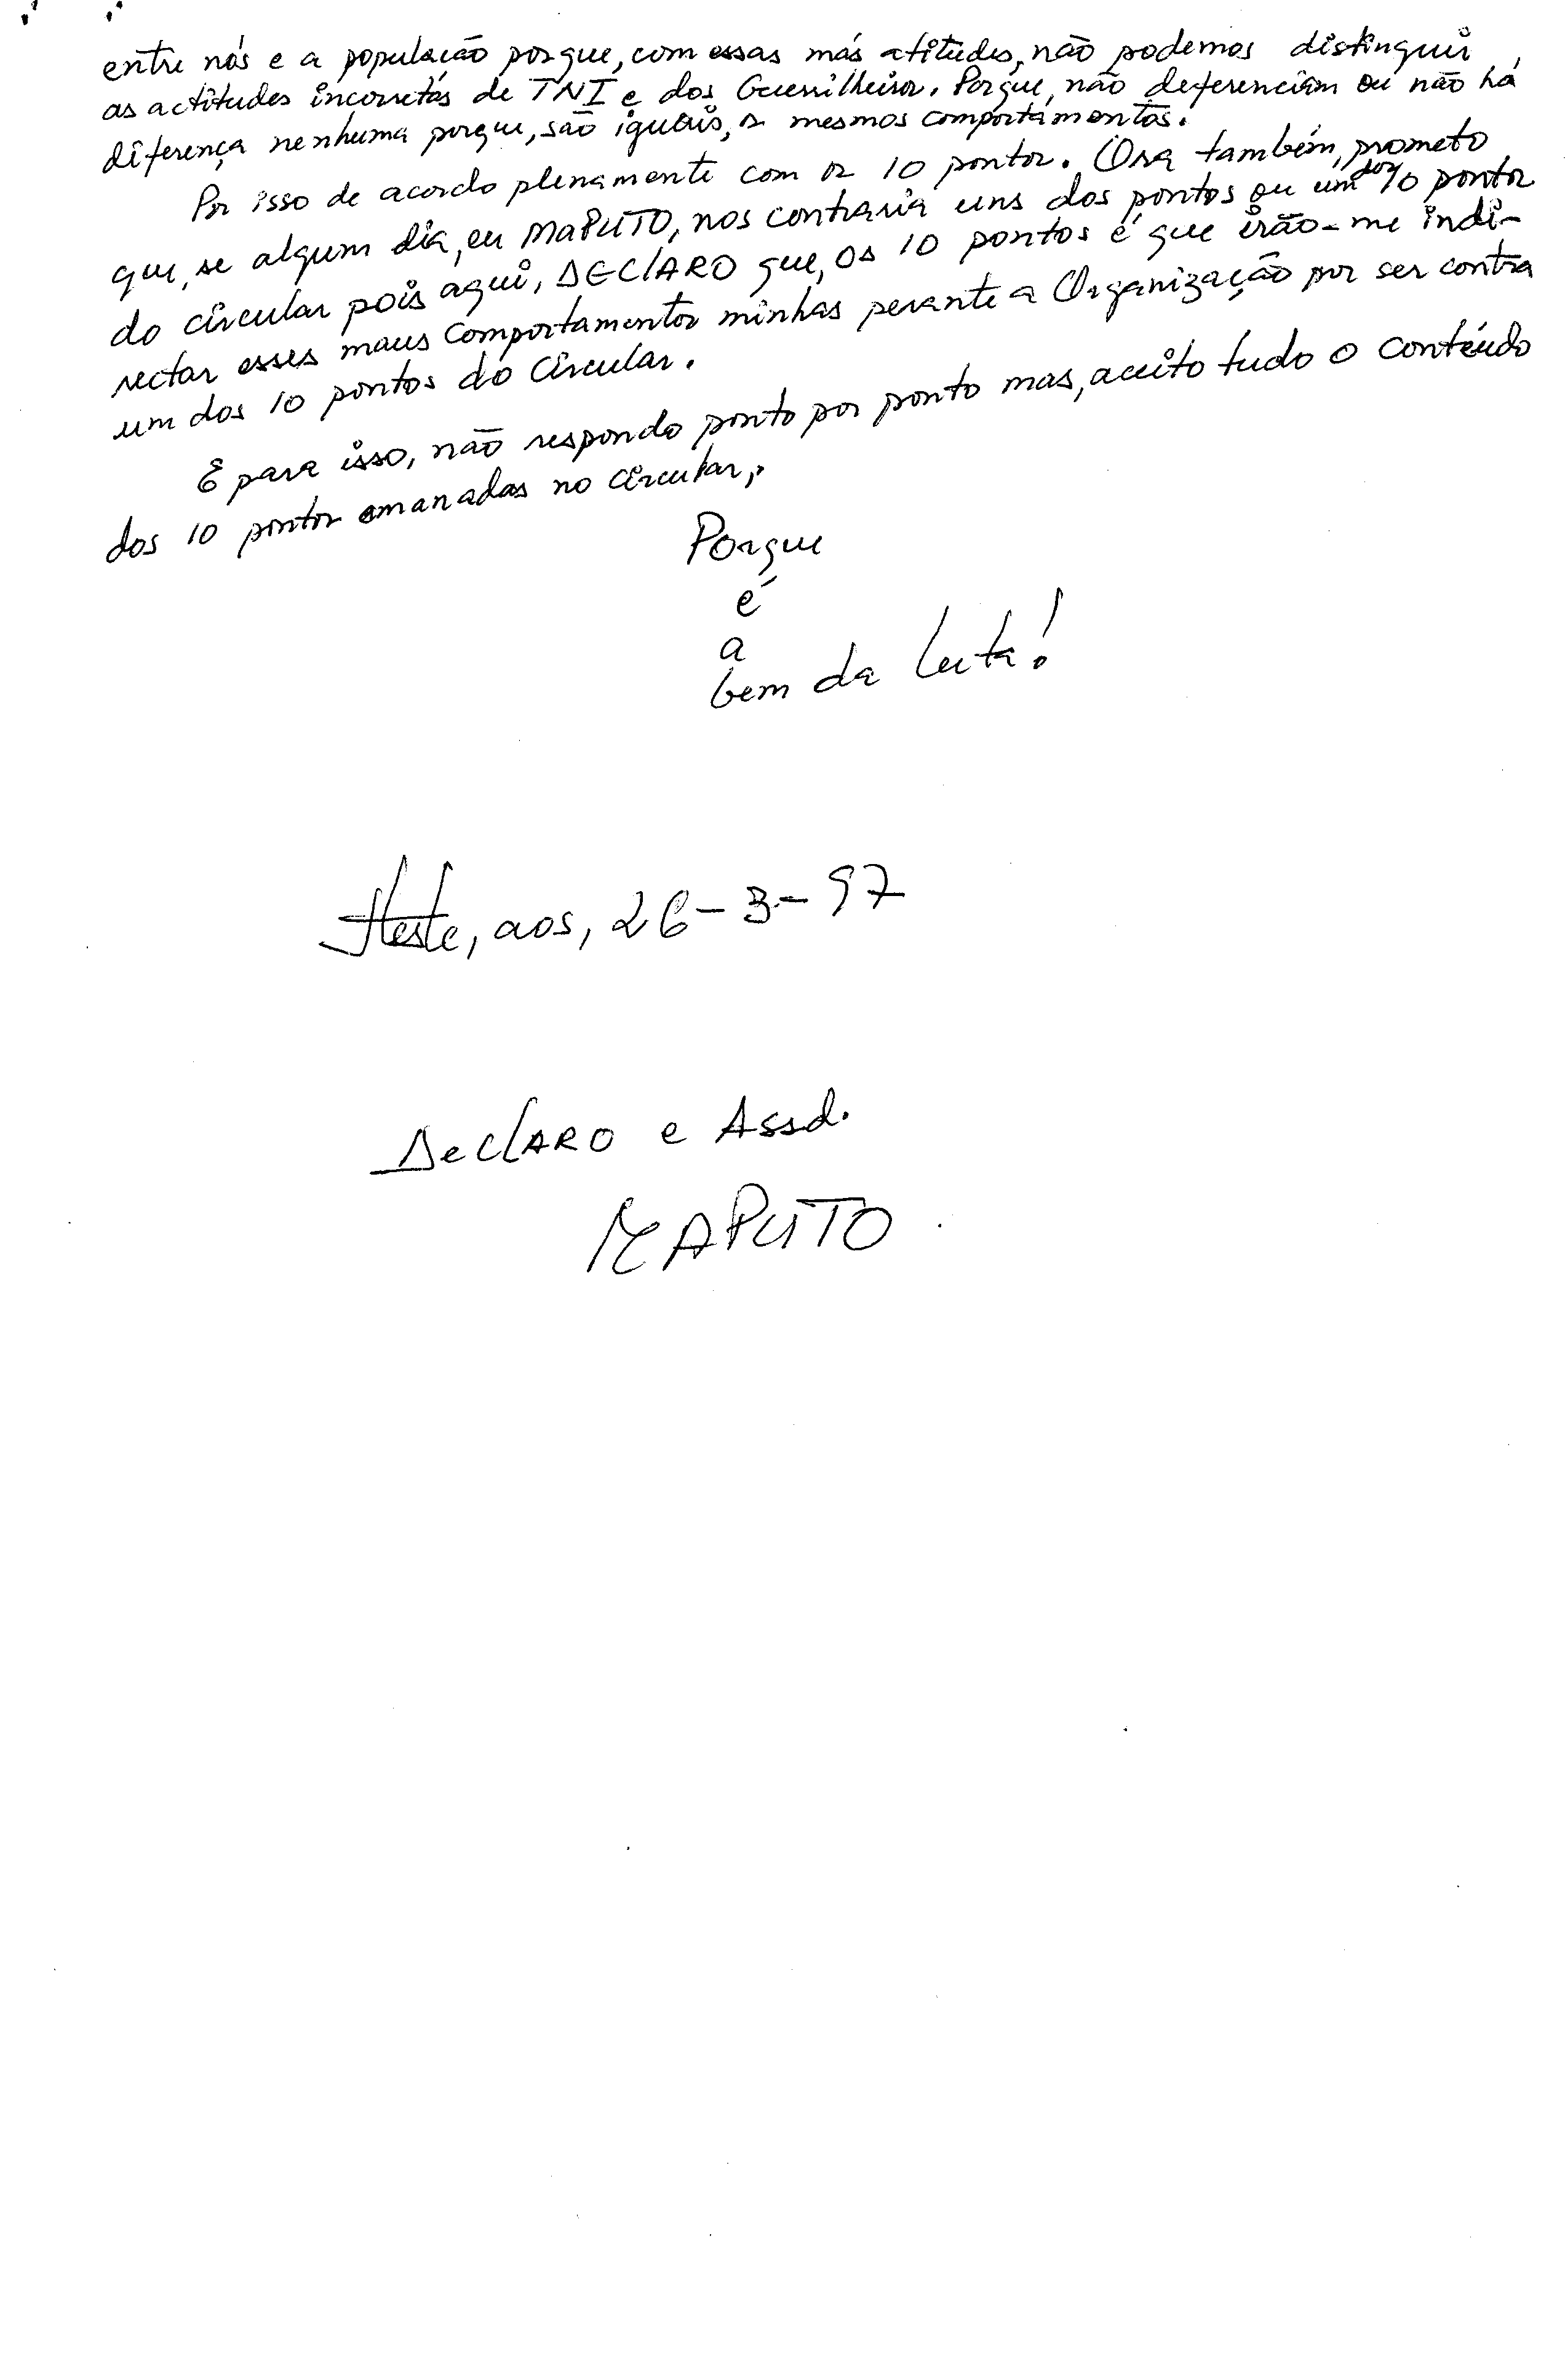 entre nós e a população porque, com essas más atitudes, não podemos distinguir
as actitudes incorretas de TNI e dos Guerrilheiros. Porque, não deferenciam ou não há
diferença nenhuma porque, são iguais, os mesmos comportamentos.
Por isso de acordo plenamente com os 10 pontos. Ora também, prometo
que, se algum dia, eu MAPUTO, nos contraria uns dos pontos ou um dos 10 pontos
do circular pois aqui, DECLARO que, os 10 pontos é que irão-me indi-
rectar esses maus comportamentos minhas perante a Organização por ser contra
um dos 10 pontos do Circular.
E para isso, não respondo ponto por ponto mas, aceito tudo o contéudo
dos 10 pontos emanadas no circular,.
Porque
é
a
bem da luta!
aos, 26-3-97
DeCLARO e Assd.
MAPUTO